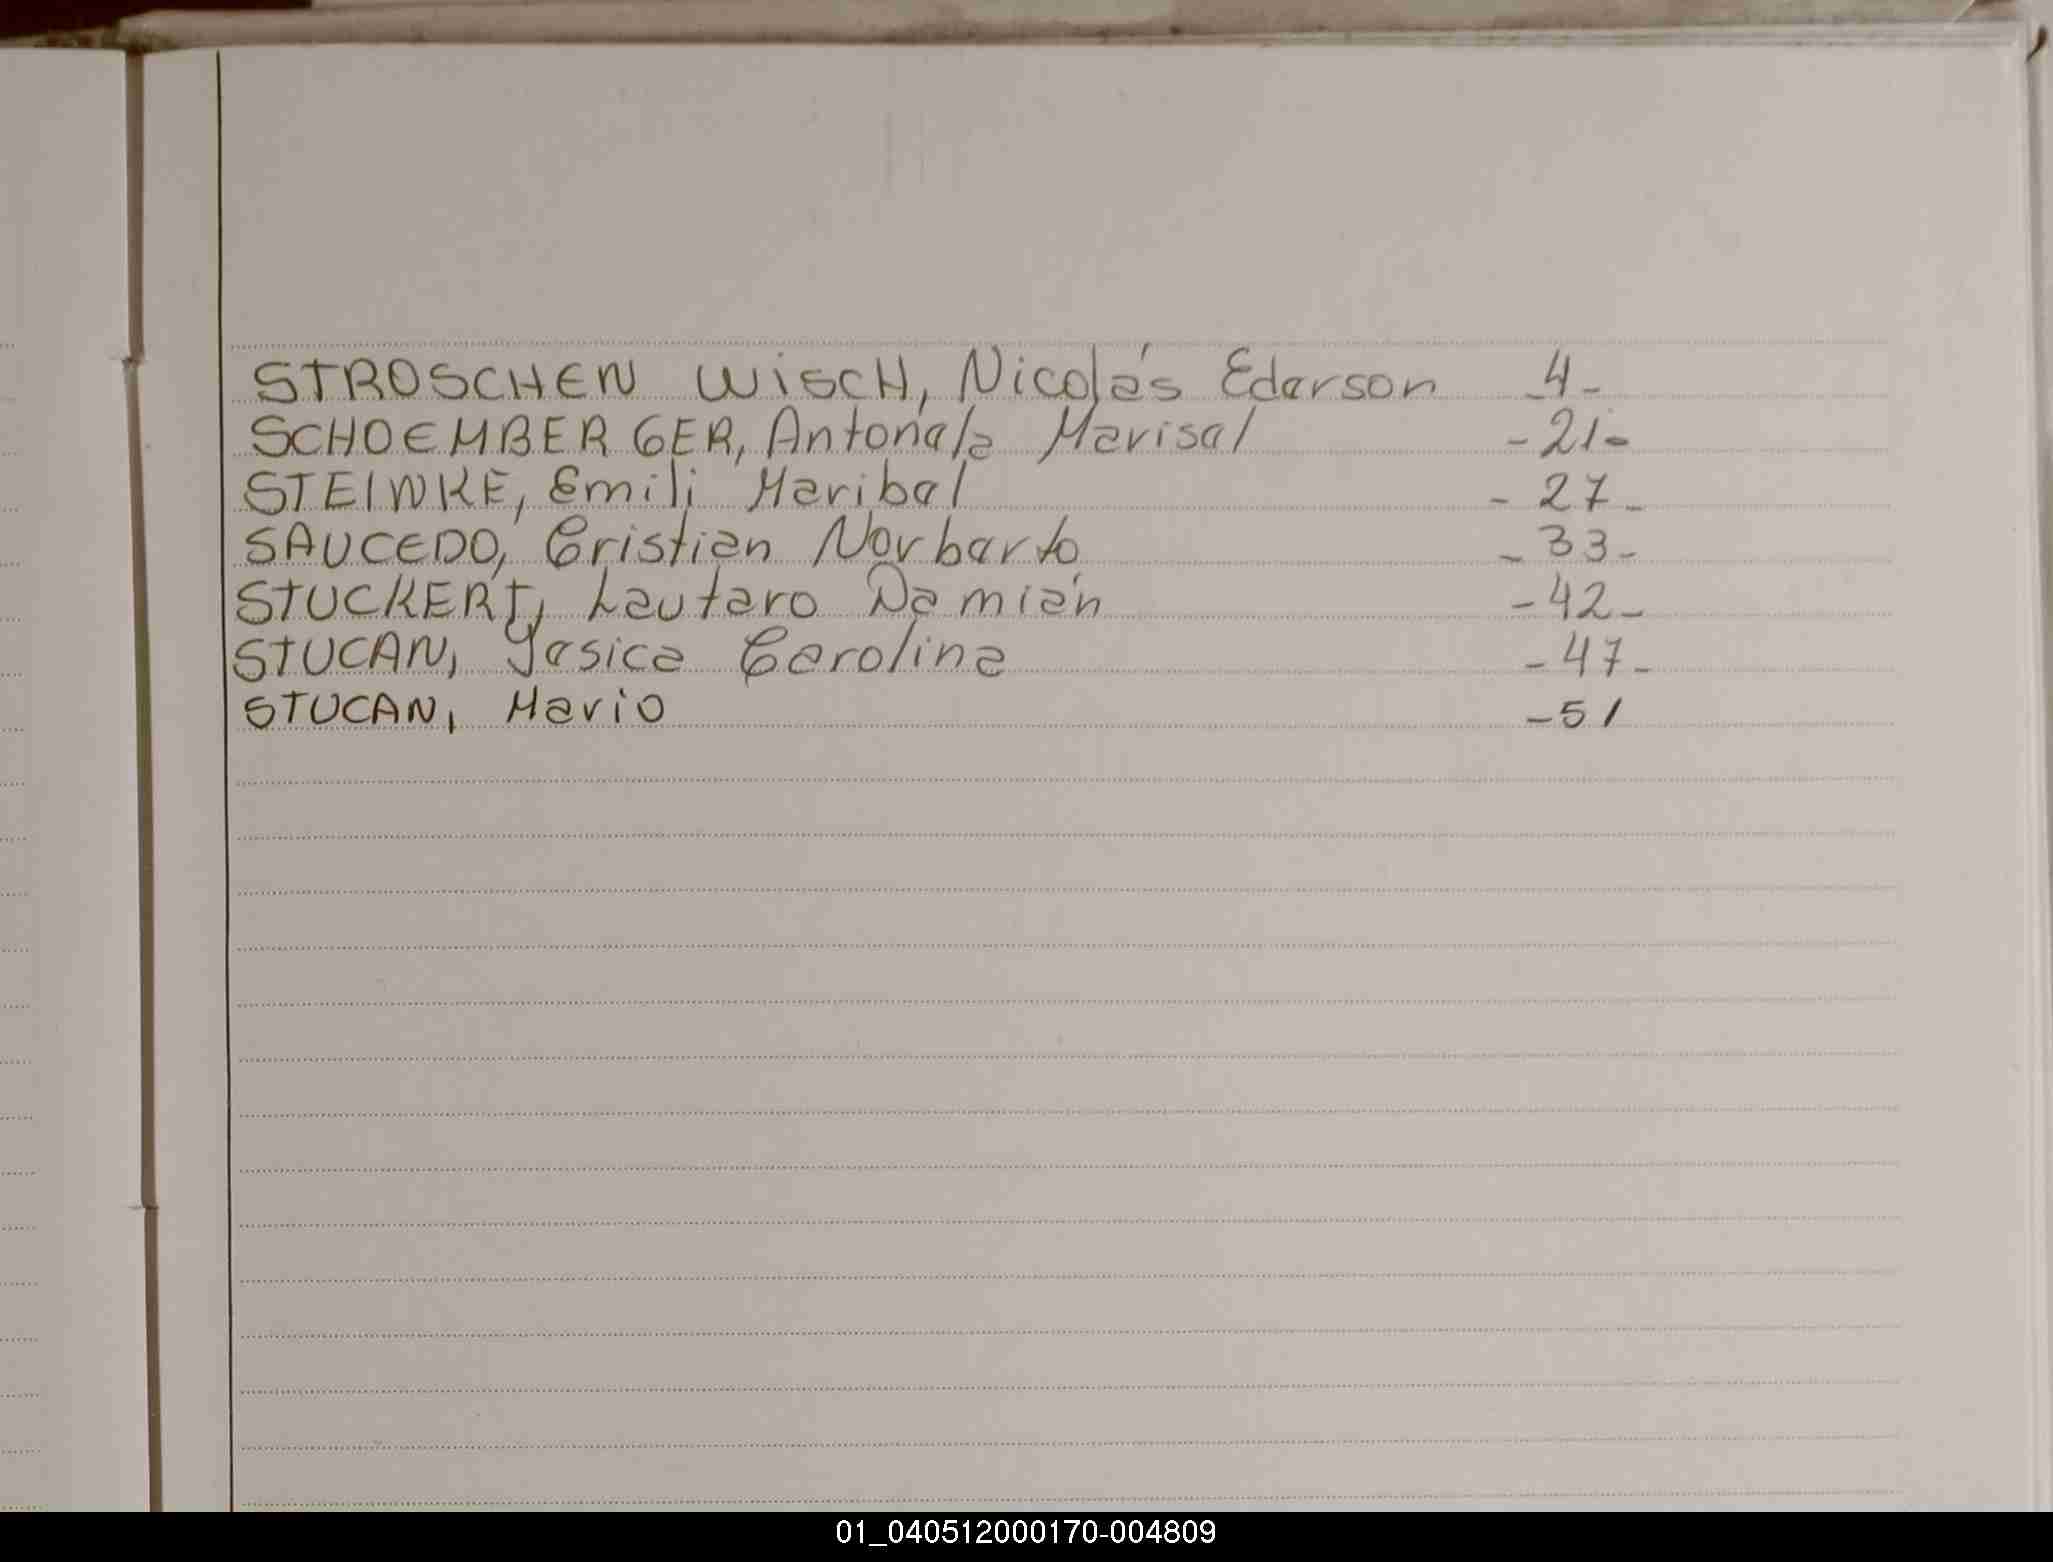 STROSCHEN WISCH, Nicolás Ederson -4-
SCHOEMBERGER, Antonela Marisel -21-
STEINKE, Emili Maribel -27-
SAUCEDO, Cristian Norberto -33-
STUCKERT, Lautaro Damián -42-
STUCAN, Yesica Carolina -47-
STUCAN, Mario -51
01_040512000170-004809